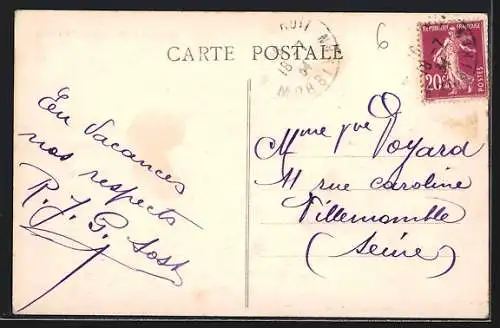 CARTE POSTALE
6
RÉPUBLIQUE FRANÇAISE
20c
POSTES
18 -7
34
MORBIHAN
En Vacances
nos respects
R. J. G. Sost
Mme Vve Voyard
11 rue Caroline
Villemomble
(Seine)